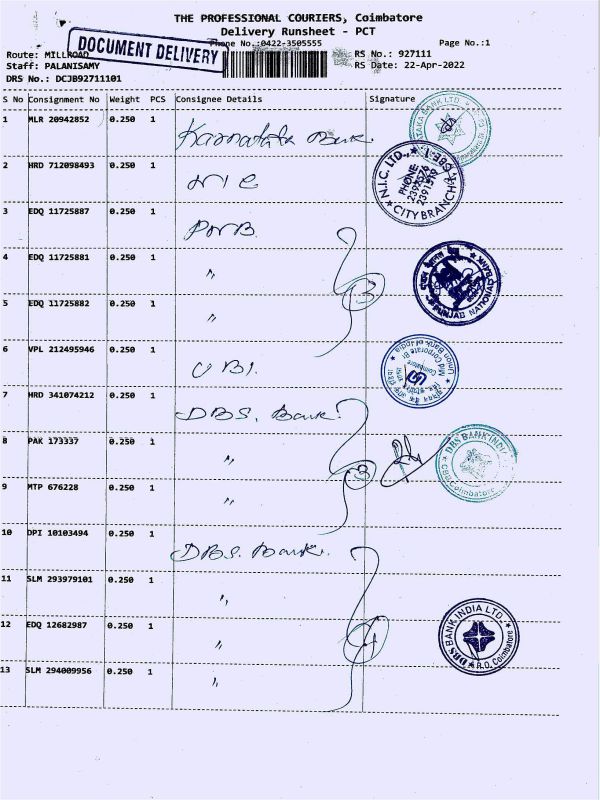 THE PROFESSIONAL COURIERS, Coimbatore
Delivery Runsheet - PCT
Phone No.:0422-3505555 Page No.:1
DOCUMENT DELIVERY
Route: MILLROAD RS No.: 927111
Staff: PALANISAMY RS Date: 22-Apr-2022
DRS No.: DCJB92711101
S No Consignment No Weight PCS Consignee Details Signature
1 MLR 20942852 0.250 1 Karnataka Bank.
2 HRD 712098493 0.250 1 NIC
N.I.C. LTD., CBE-1.
PHONE
CITY BRANCH
3 EDQ 11725887 0.250 1 PNB.
4 EDQ 11725881 0.250 1 "
3
PUNJAB NATIONAL BANK
5 EDQ 11725882 0.250 1 "
6 VPL 212495946 0.250 1 UBI.
Union Bank of India
Mid Corporate Br
Coimbatore
7 HRD 341074212 0.250 1 DBS. Bank.
8 PAK 173337 0.250 1 "
3
DBS BANK INDIA
CBB Coimbatore
9 MTP 676228 0.250 1 "
10 DPI 10103494 0.250 1 DBS. Bank.
11 SLM 293979101 0.250 1 "
12 EDQ 12682987 0.250 1 "
4
DBS BANK INDIA LTD.
R.O. Coimbatore
13 SLM 294009956 0.250 1 "